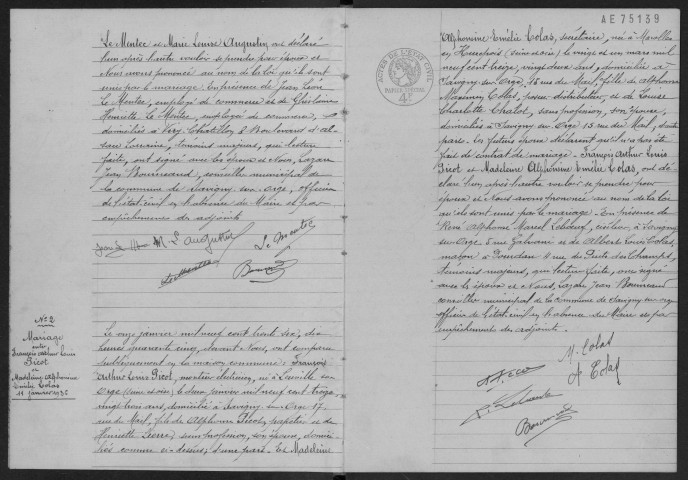 Le Mentec et Marie Louise Augustin ont déclaré
l'un après l'autre vouloir se prendre pour époux et
Nous avons prononcé au nom de la loi qu'ils sont
unis par le mariage. En présence de Jean Léon
Le Mentec, employé de commerce et de Ghislaine
Henriette Le Mentec, employée de commerce,
domiciliés à Viry-Chatillon 8 Boulevard d'Al-
sace Lorraine, témoins majeurs, qui lecture
faite, ont signé avec les époux et Nous, Lazare
Jean Bouineaud, conseiller municipal de
la commune de Savigny sur Orge, officier
de l'état-civil en l'absence du Maire et par
empêchement des adjoints
M L Augustin
Le Mentec
Nº 2
Mariage
entre
François Arthur Louis
Picot
et
Madeleine Alphonsine
Emilie Colas
11 janvier 1936
Le onze janvier mil neuf cent trente six, dix
heures quarante cinq, devant Nous, ont comparu
publiquement en la maison commune: François
Arthur Louis Picot, monteur électricien, né à
Orge (Seine et Oise) le deux janvier mil neuf cent treize,
vingt trois ans, domicilié à Savigny sur Orge 17
rue du Mail, fils de Alphonse Picot, papetier et de
Henriette sans profession, son épouse, domici-
liés comme ci-dessus; d'une part. Et Madeleine
AE75139
ACTES DE L'ETAT CIVIL
4F
Alphonsine Emélie Colas, secrétaire, née à Marolles
en Hurepoix (Seine et Oise) le vingt et un mars mil
neuf cent treize, vingt deux ans, domiciliée à
Savigny sur Orge, 15 rue du Mail, fille de Alphonse
Maximin Colas, poseur distributeur, et de Louise
Charlotte Chalot, sans profession, son épouse,
domiciliés à Savigny sur Orge 15 rue du Mail, d'autre
part. Les futurs époux déclarent qu'il n'a pas été
fait de contrat de mariage. François Arthur Louis
Picot et Madeleine Alphonsine Emélie Colas, ont dé-
claré l'un après l'autre vouloir se prendre pour
époux et Nous avons prononcé au nom de la loi
qu'ils sont unis par le mariage. En présence de
René Alphonse Marcel à Savigny
sur Orge 5 rue Galvani et de Albert Louis Colas,
maçon à Dourdan 4 rue du Puits des Champs,
témoins majeurs, qui lecture faite, ont signé
avec les époux et Nous, Lazare Jean Bouineaud
conseiller municipal de la commune de Savigny sur Orge
officier de l'état civil en l'absence du Maire et par
empêchement des adjoints.
M. Colas
A Colas